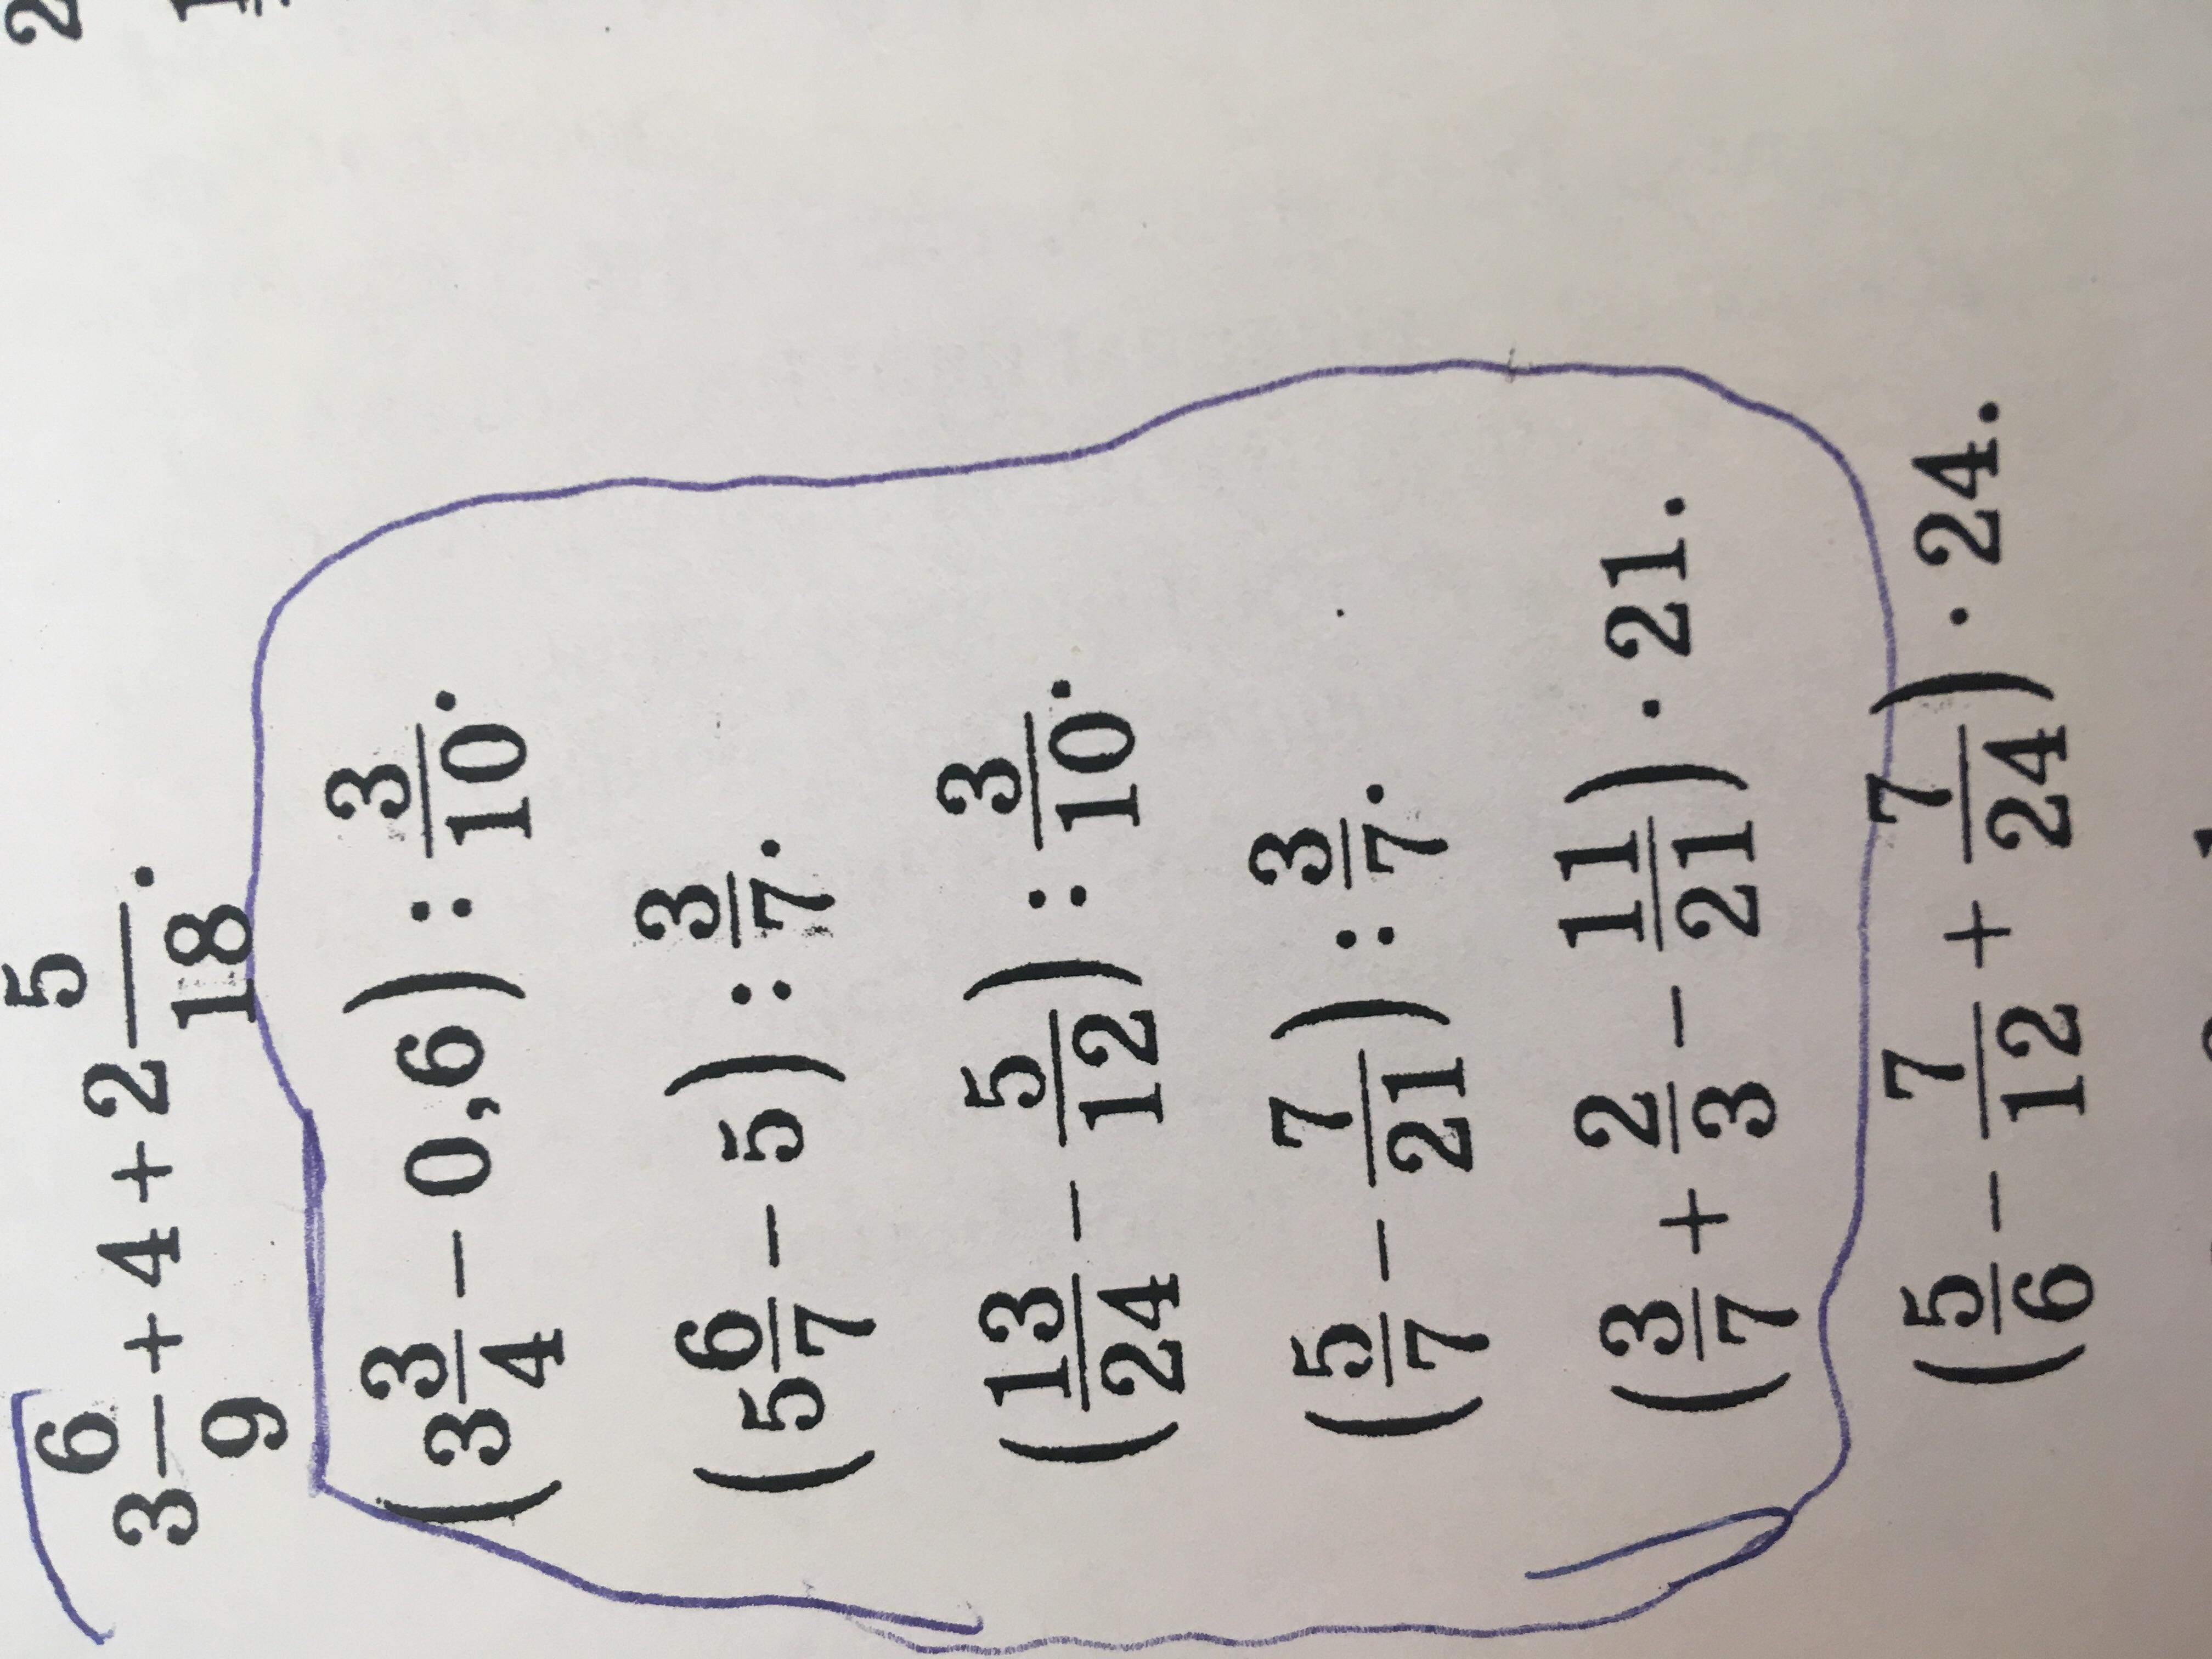 3 6/9 + 4 + 2 5/18.
(3 3/4 − 0,6) : 3/10.
(5 6/7 − 5) : 3/7.
(13/24 − 5/12) : 3/10.
(5/7 − 7/21) : 3/7.
(3/7 + 2/3 − 11/21) · 21.
(5/6 − 7/12 + 7/24) · 24.